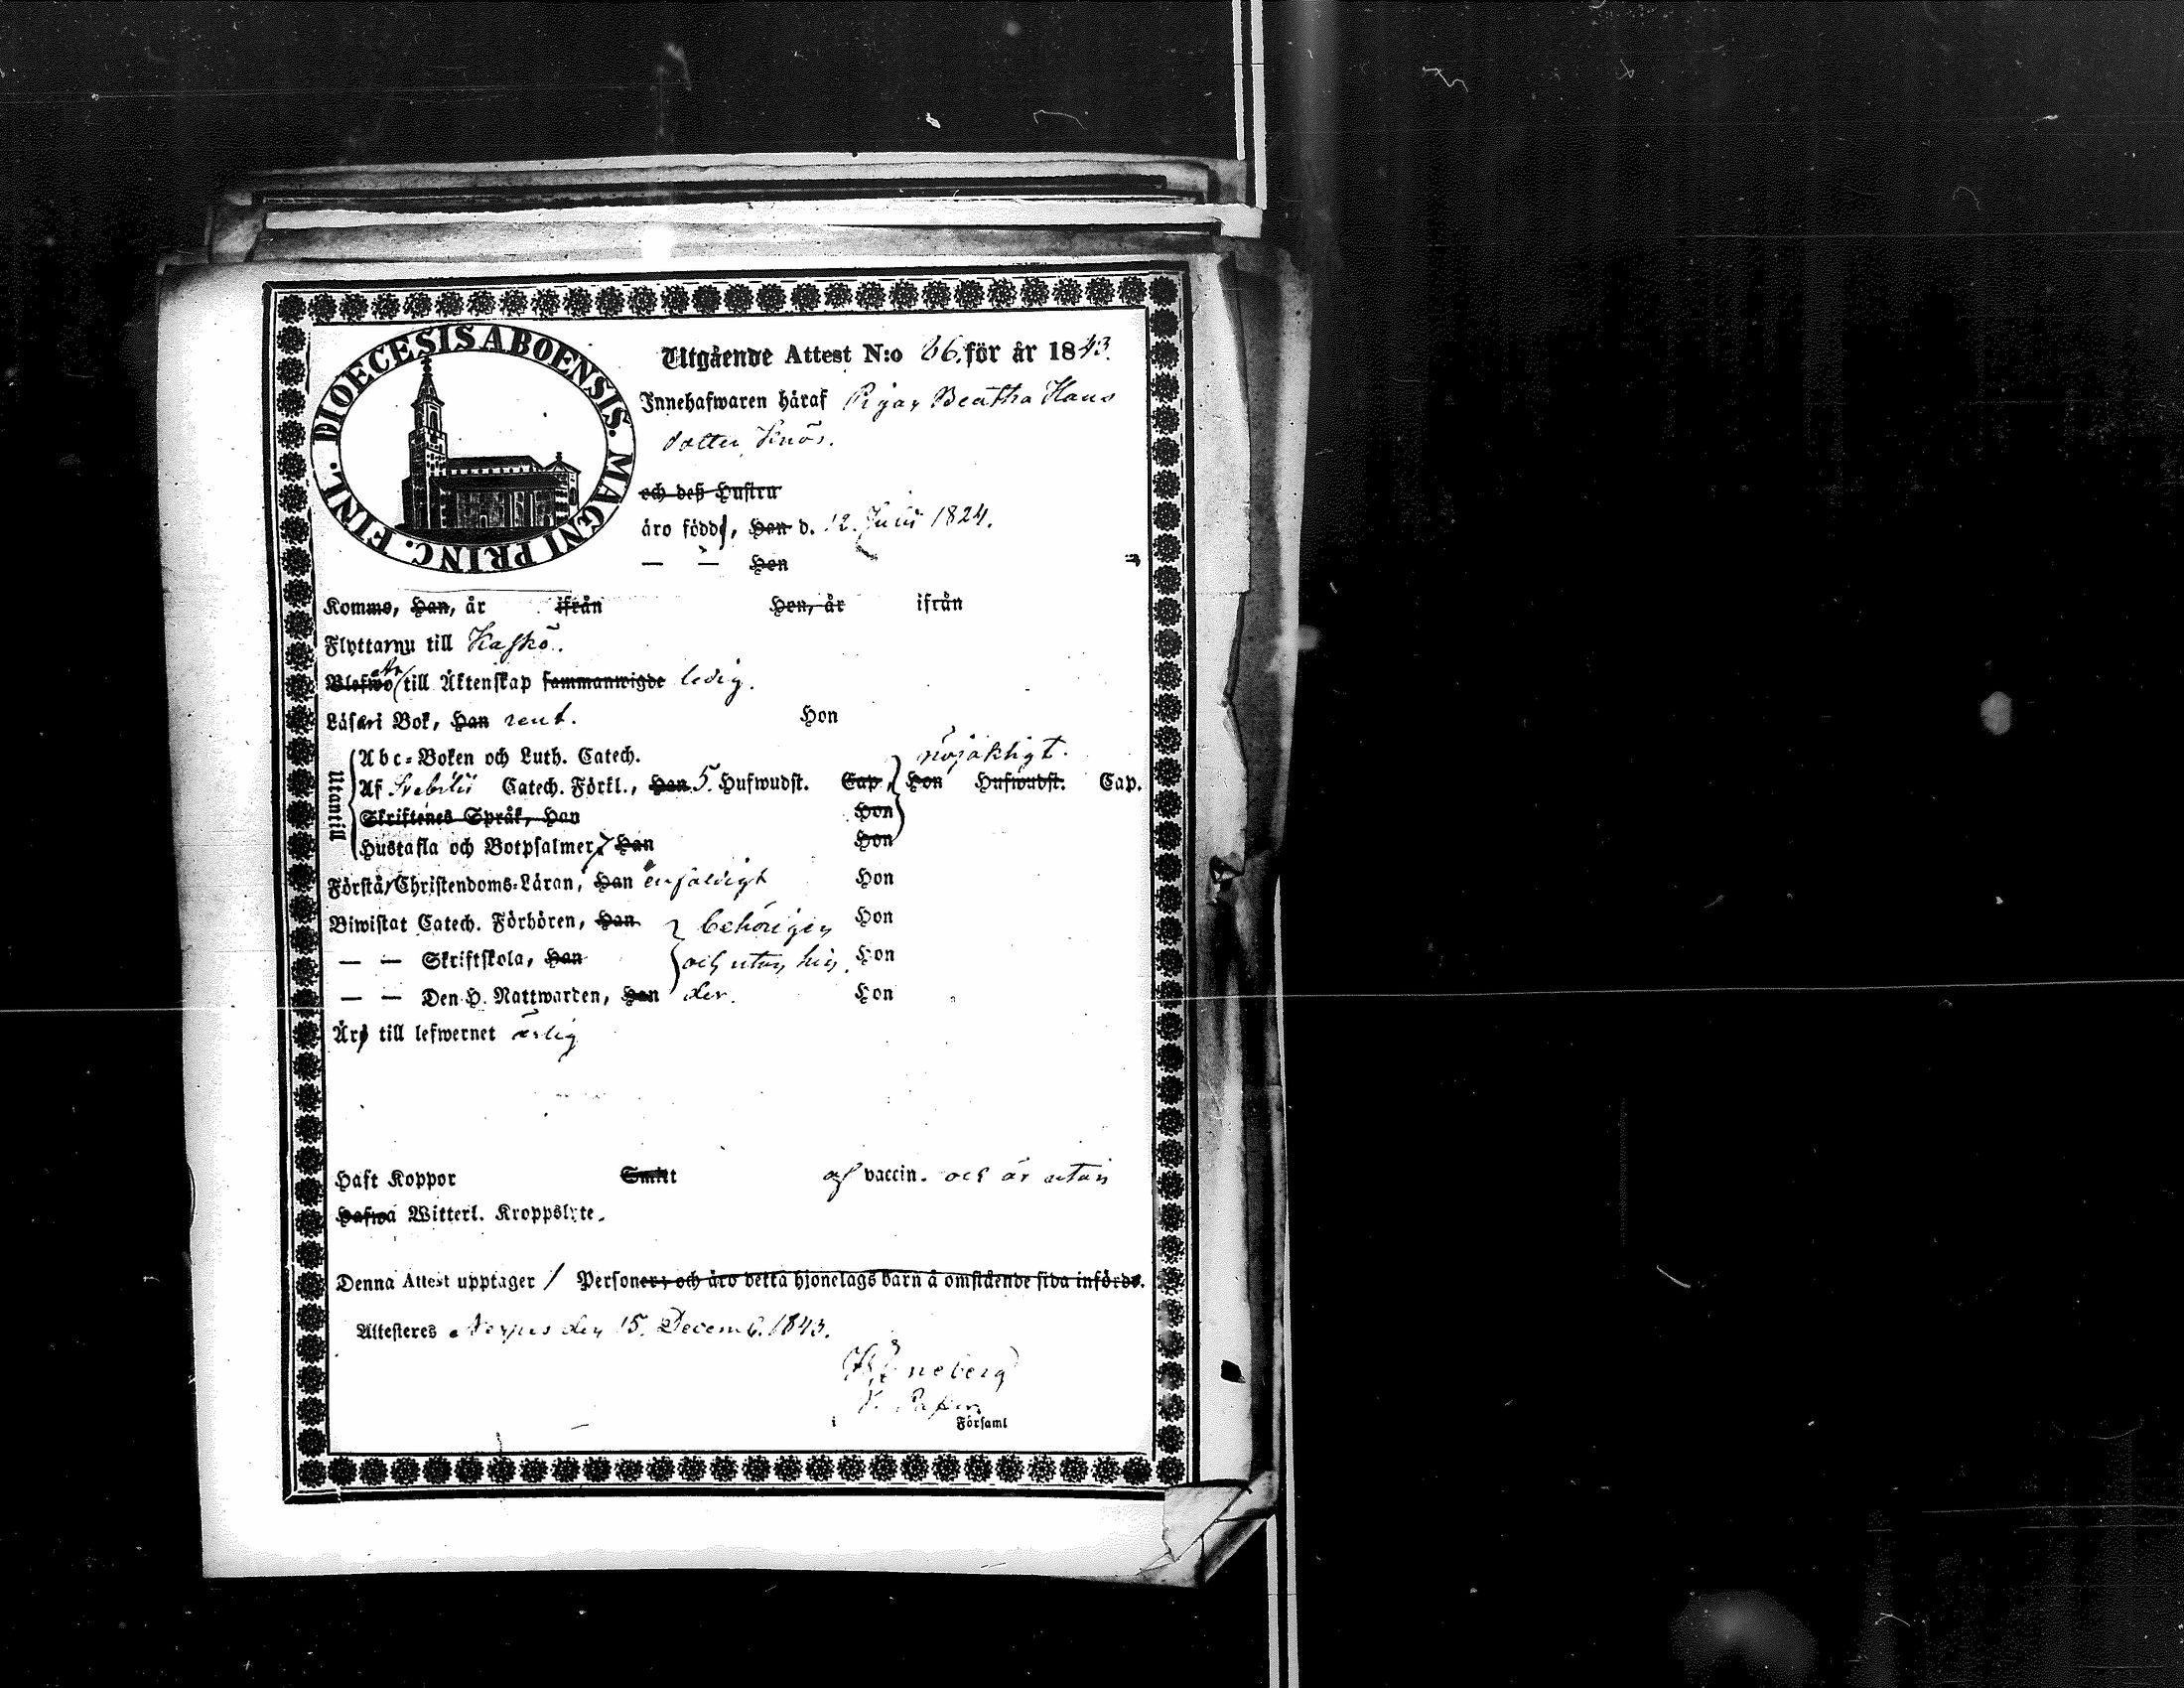 DIOECESIS ABOENSIS. MAGNI PRINC. FINL.
Utgående Attest N:o 86. för år 1843.
Innehafwaren håraf Pigan Beatha Hans
dotter Knös.
och deß Hustru
äro födde, Han d. 12. Julii 1824.
— — Hon
Komme, Han, år ifrån Hon, år ifrån
Flyttarnu till Kaskö.
Blefwo Är till Äktenskap sammanwigde ledig.
Läser i Bok, Han rent. Hon
Utantill
Abc-Boken och Luth. Catech. nöjaktigt.
Af Svebilii Catech. Förkl., Han 5. Hufwudst. Cap, Hon Hufwudst. Cap.
Skriftenes Språk, Han Hon
Hustafla och Botpsalmer, Han Hon
Förstår Christendoms-Läran, Han enfaldigt Hon
Biwistat Catech. Förhören, Han behörigen Hon
— — Skriftskola, Han och utan hin Hon
— — Den H. Nattwarden, Han der. Hon
Äro till lefwernet ärlig
Haft Koppor Smitt af vaccin. och är utan
Hafwa Witterl. Kroppslyte.
Denna Attest upptager / Personer, och äro detta hjonelags barn å omstående sida införde.
Attesteras Nerpes den 15. Decemb. 1843.
V. Pastor
i Församl